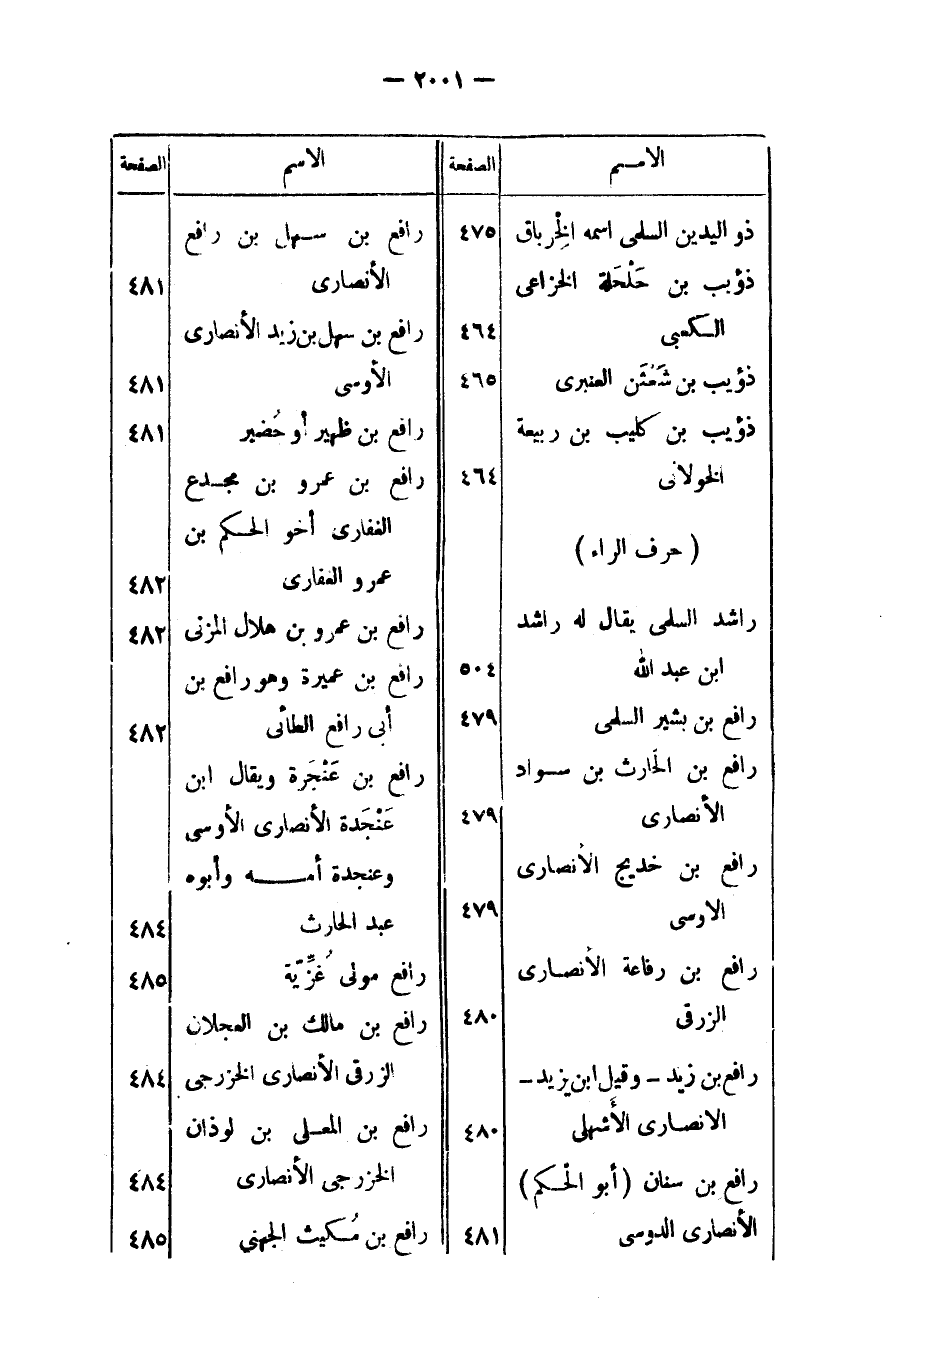 — ٢٠٠١ —
الاسم
الصفحة
ذو اليدين السلمى اسمه الخِرْباق ٤٧٥
ذؤيب بن حَلْحَلة الخزاعى
الكعبى ٤٦٤
ذؤيب بن شَعْثَن العنبرى ٤٦٥
ذؤيب بن كليب بن ربيعة
الخولانى ٤٦٤
( حرف الراء )
راشد السلمى يقال له راشد
ابن عبد الله ٥٠٤
رافع بن بشير السلمى ٤٧٩
رافع بن الحَارث بن سواد
الأنصارى ٤٧٩
رافع بن خديج الأنصارى
الاوسى ٤٧٩
رافع بن رفاعة الأنصارى
الزرقى ٤٨٠
رافع بن زيد ــ وقيل ابن يزيد ــ
الانصارى الأَشهلى ٤٨٠
رافع بن سنان ( أبو الْحكم )
الأنصارى الدوسى ٤٨١
الاسم
الصفحة
رافع بن سهل بن رافع
الأنصارى ٤٨١
رافع بن سهل بن زيد الأنصارى
الأوسى ٤٨١
رافع بن ظهير أو حُضير ٤٨١
رافع بن عمرو بن مجدع
الغفارى أخو الحكم بن
عمرو الغفارى ٤٨٢
رافع بن عمرو بن هلال المزنى ٤٨٢
رافع بن عميرة وهو رافع بن
أبى رافع الطائى ٤٨٢
رافع بن عَنْجَرة ويقال ابن
عَنْجَدة الأنصارى الأوسى
وعنجدة أمه وأبوه
عبد الحارث ٤٨٤
رافع مولى غُزِّيّة ٤٨٥
رافع بن مالك بن العجلان
الزرقى الأنصارى الخزرجى ٤٨٤
رافع بن المعلى بن لوذان
الخزرجى الأنصارى ٤٨٤
رافع بن مُكيث الجهنى ٤٨٥